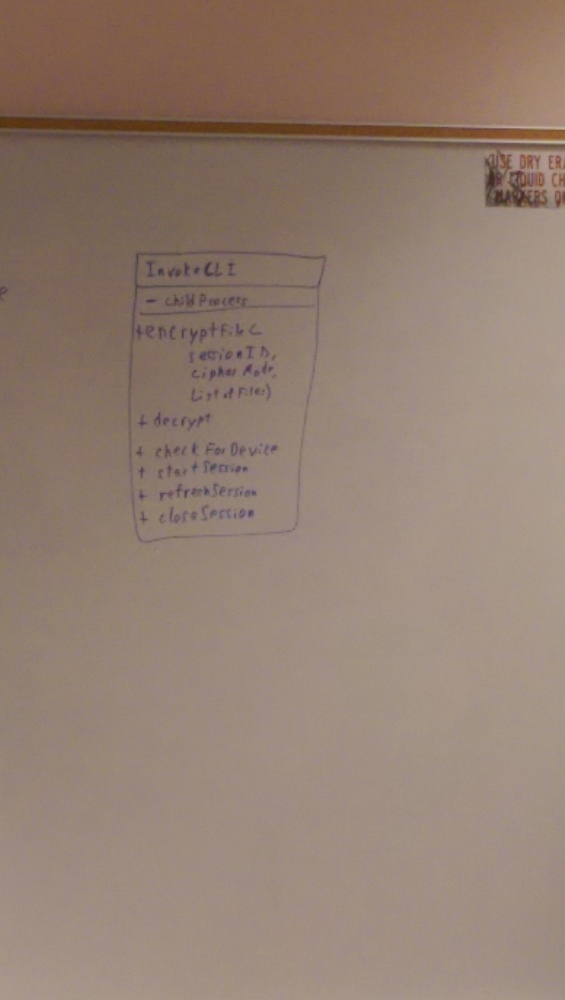 USE DRY ERA
OR LIQUID CH
MARKERS ON
e
InvokeCLI
- childProcess
+encryptFile(
sessionID,
cipherMode,
ListofFiles)
+ decrypt
+ checkForDevice
+ startSession
+ refreshSession
+ closeSession